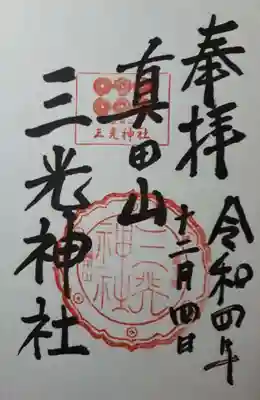 奉拝
令和四年
十二月四日
真田山
三光神社
三光神社
三光
神社